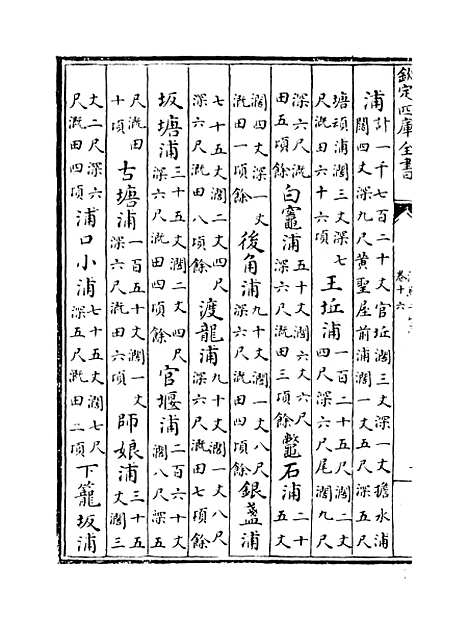 欽定四庫全書
卷十六
浦計一千七百二十丈官坵濶三丈深一丈擔水浦
闊四丈深九尺黄聖屋前浦濶一丈五尺深五尺
塘頭浦濶三丈深七
尺溉田六十六項
王坵浦
一百二十五尺濶二丈
四尺深六尺尾濶九尺
深六尺溉
田五項餘
白鼉浦
五十丈丈六尺
深六尺溉田三項餘
鼈石浦
二十
五丈
濶四丈深一丈
溉田一項餘
後角浦
九十丈濶一丈八尺
深六尺溉田四項餘
銀盞浦
七十五丈濶二丈四尺
深六尺溉田八項餘
渡龍浦
九十丈濶一丈八尺
深六尺溉田七項餘
坂塘浦
三十五丈濶二丈四尺
深六尺溉田四項餘
官堰浦
二百六十丈
濶八尺深五
尺溉田
十項
古塘浦
一百五十丈濶一丈
深六尺溉田六項
師娘浦
三十五
丈濶三
丈二尺深六
尺溉田四項
浦口小浦
七十五丈濶七尺
深五尺溉田二項
下籠坂浦